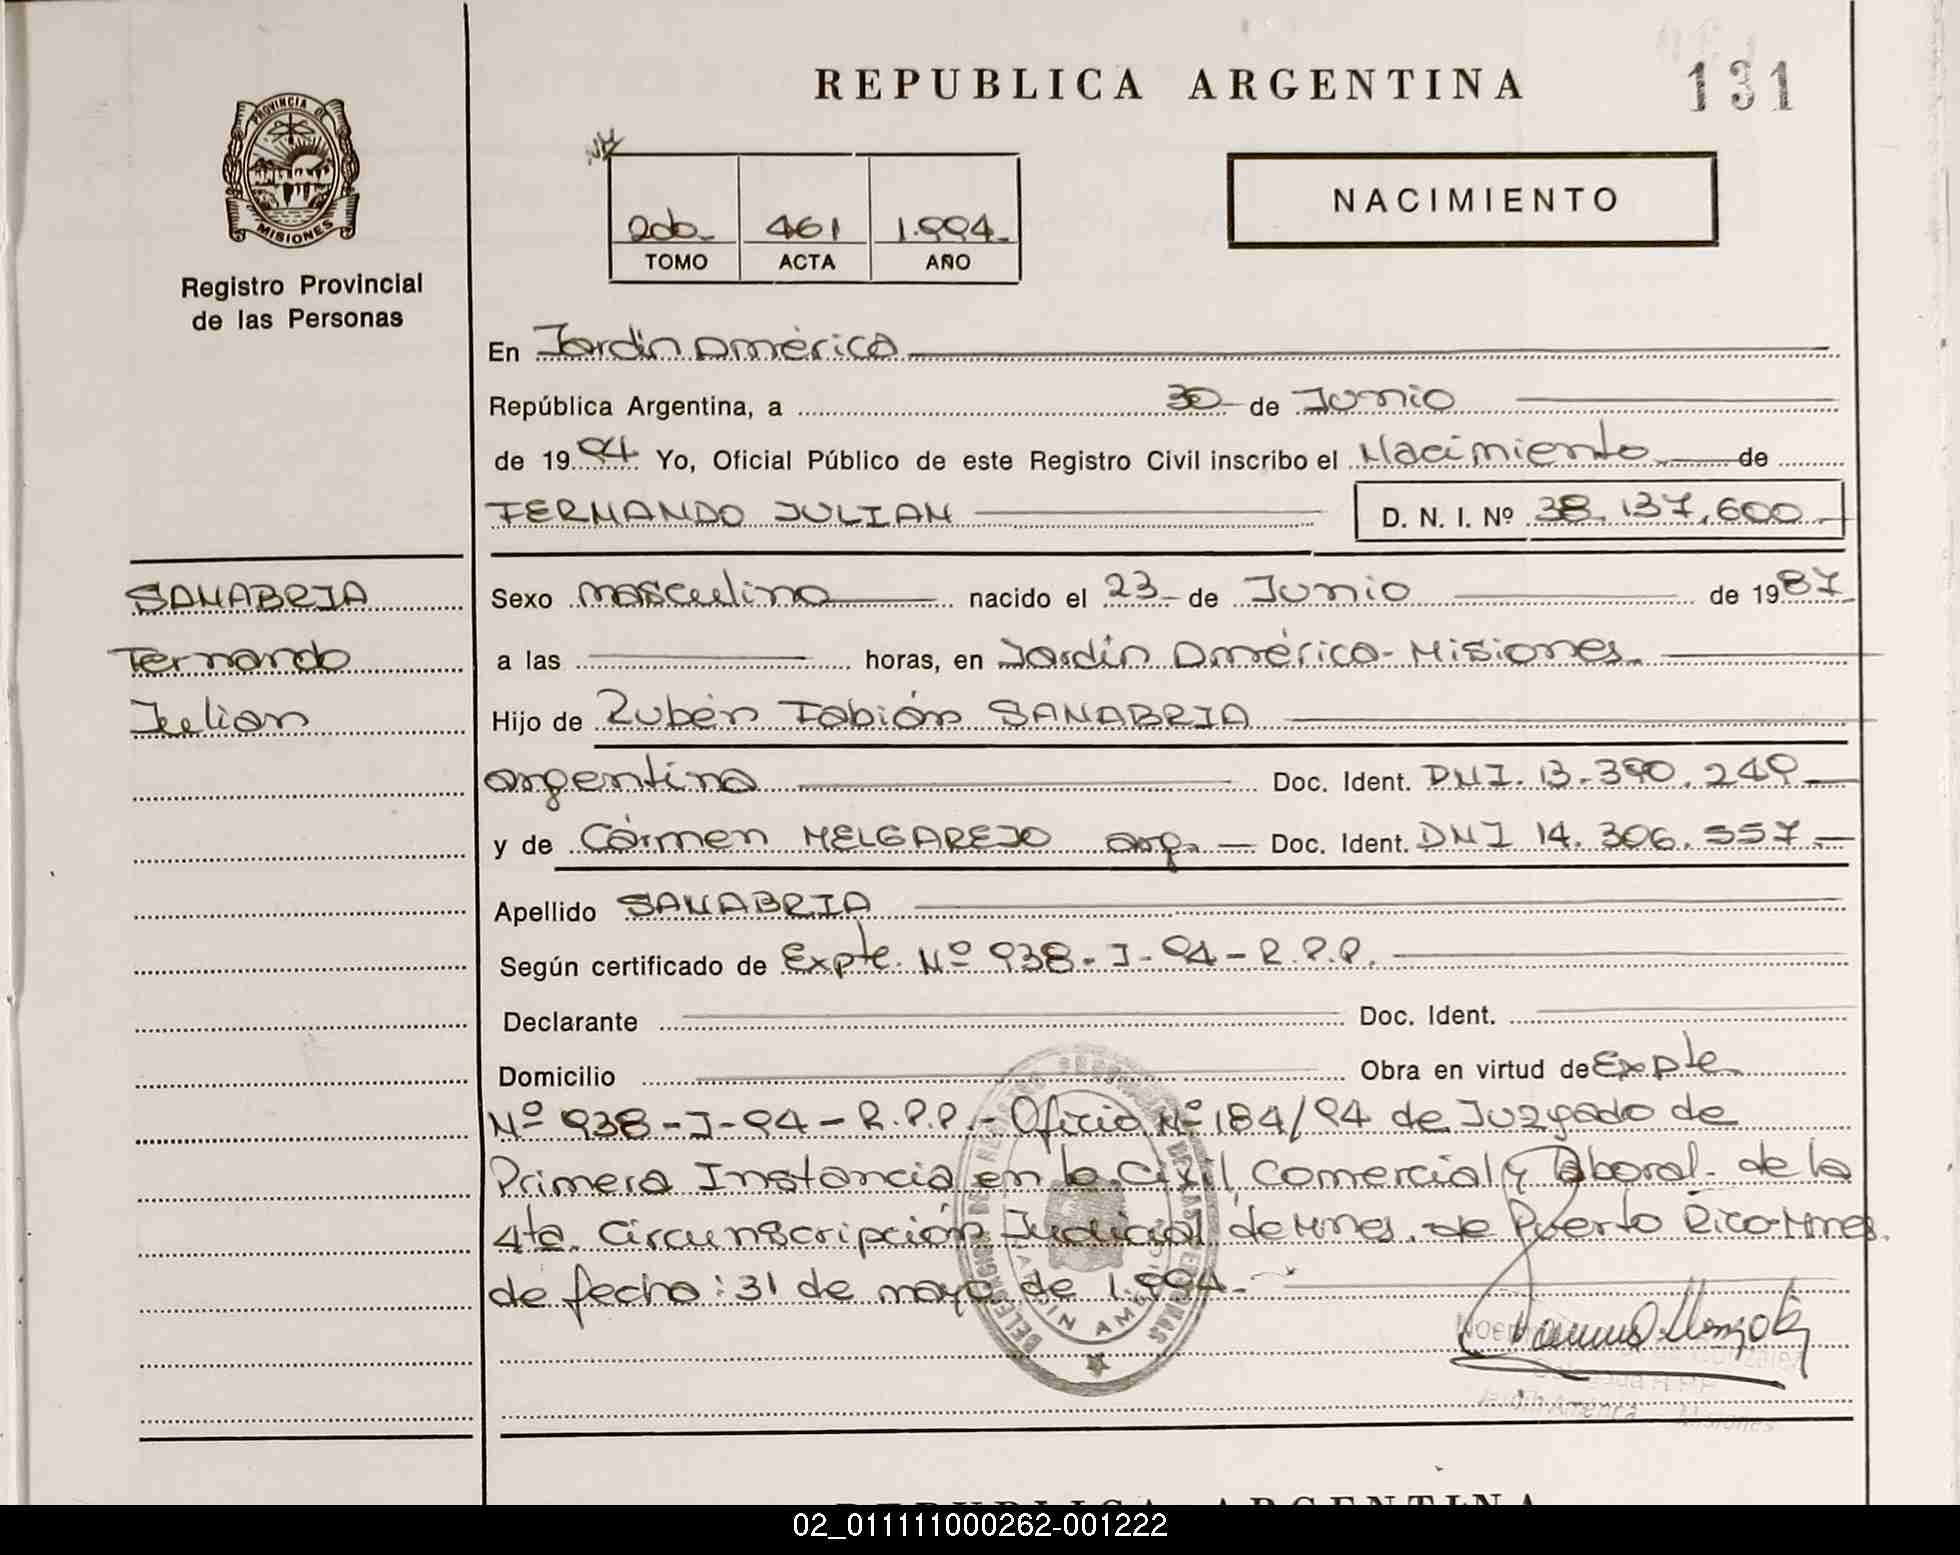 REPUBLICA ARGENTINA
131
PROVINCIA DE
MISIONES
Registro Provincial
de las Personas
2do. 461 1.994.
TOMO ACTA AÑO
NACIMIENTO
En Jardín América
República Argentina, a 30 de Junio
de 1994 Yo, Oficial Público de este Registro Civil inscribo el Nacimiento de
FERNANDO JULIAN D. N. I. Nº 38.137.600
SANABRIA
Fernando
Julian
Sexo masculino nacido el 23 de Junio de 1987
a las horas, en Jardín América-Misiones.
Hijo de Rubén Fabián SANABRIA
argentino Doc. Ident. DNI. 13.390.249
y de Cármen MELGAREJO arg. Doc. Ident. DNI 14.306.557.-
Apellido SANABRIA
Según certificado de Expte. Nº 938-J-94-R.P.P.
Declarante Doc. Ident.
Domicilio Obra en virtud de Expte
Nº 938-J-94-R.P.P.- Oficio Nº 184/94 de Juzgado de
Primera Instancia en lo Civil, Comercial y Laboral. de la
4ta. Circunscripción Judicial de Mnes. de Puerto Rico-Mnes.
de fecha: 31 de mayo de 1.994.-
Jardín América - Misiones
REPUBLICA ARGENTINA
02_011111000262-001222